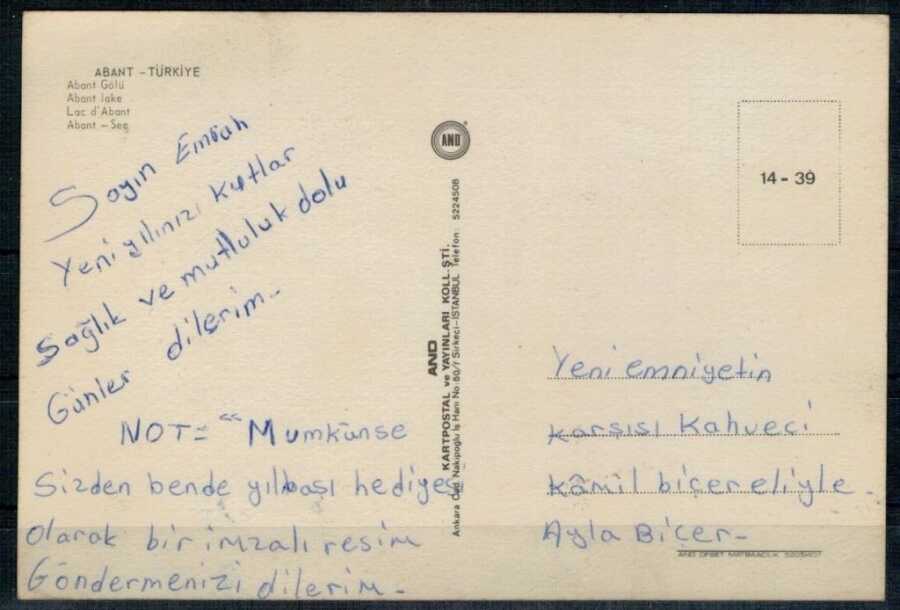 ABANT - TÜRKİYE
Abant Gölü
Abant lake
Lac d'Abant
Abant - See
Sayın Emrah
Yeni yılınızı kutlar
Sağlık ve mutluluk dolu
Günler dilerim-
NOT= "Mumkünse
Sizden bende yılbaşı hediyesi
Olarak bir imzalı resim
Göndermenizi dilerim-
AND
AND
KARTPOSTAL ve YAYINLARI KOLL. ŞTİ.
Ankara Cad. Nakipoğlu İş Hanı No: 60/7 Sirkeci-İSTANBUL Telefon: 5224508
14 - 39
Yeni emniyetin
karşısı Kahveci
kâmil biçer eliyle.
Ayla Biçer-
AND OFSET MATBAACILIK